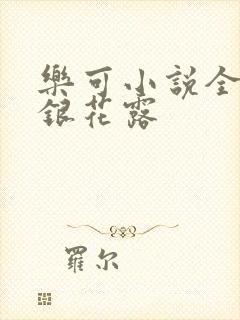 樂可小説全
銀花露
羅尔